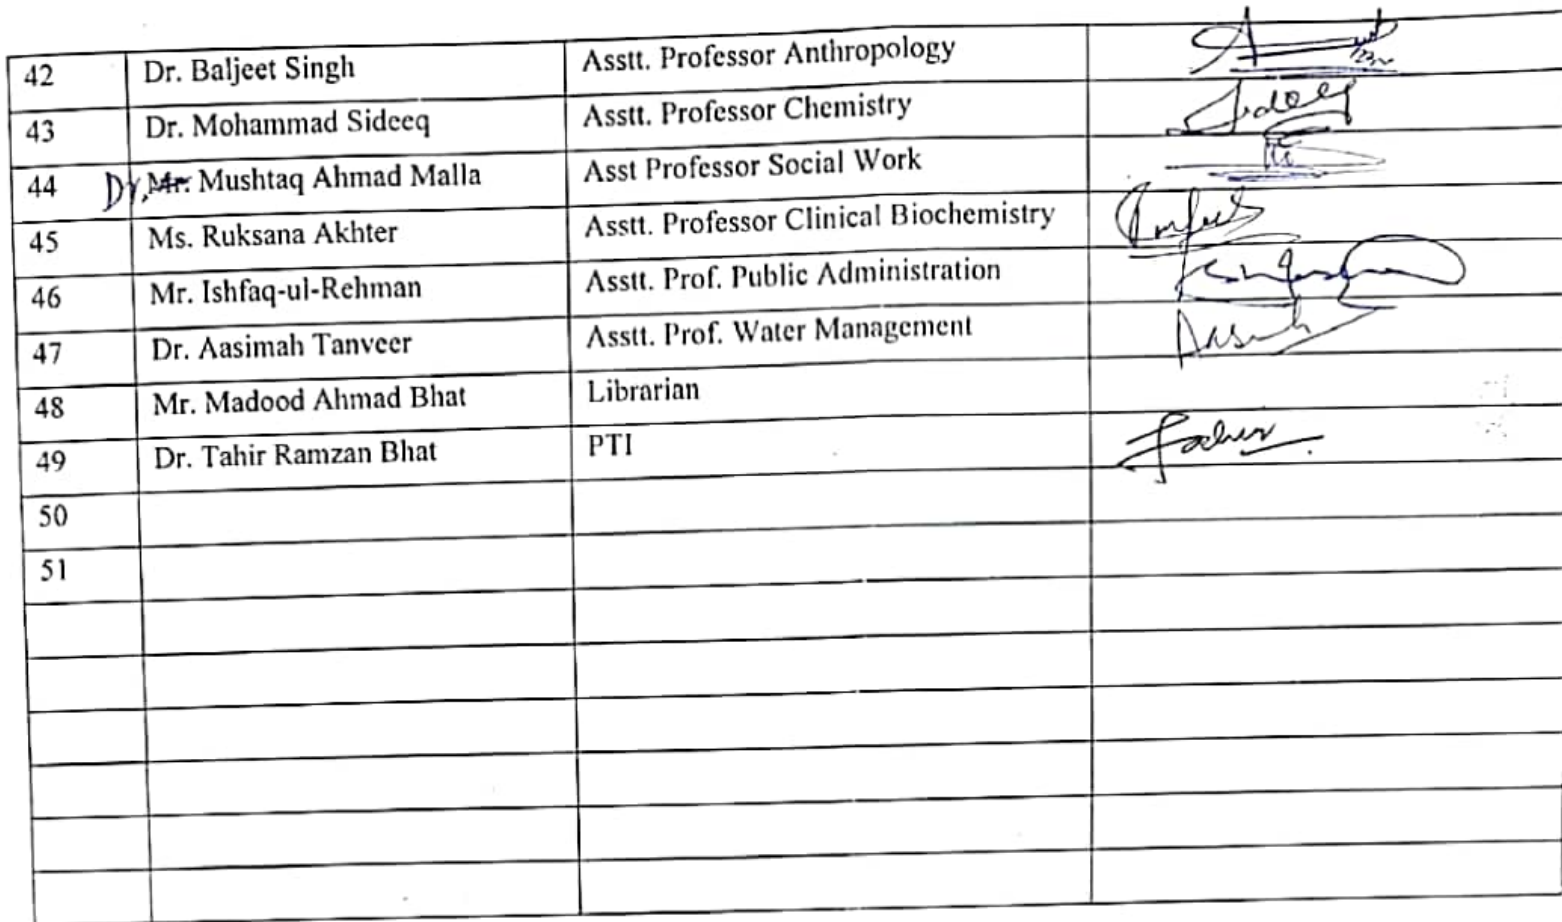 42 Dr. Baljeet Singh Asstt. Professor Anthropology
43 Dr. Mohammad Sideeq Asstt. Professor Chemistry
44 Dr. Mr. Mushtaq Ahmad Malla Asst Professor Social Work
45 Ms. Ruksana Akhter Asstt. Professor Clinical Biochemistry
46 Mr. Ishfaq-ul-Rehman Asstt. Prof. Public Administration
47 Dr. Aasimah Tanveer Asstt. Prof. Water Management
48 Mr. Madood Ahmad Bhat Librarian
49 Dr. Tahir Ramzan Bhat PTI
50
51